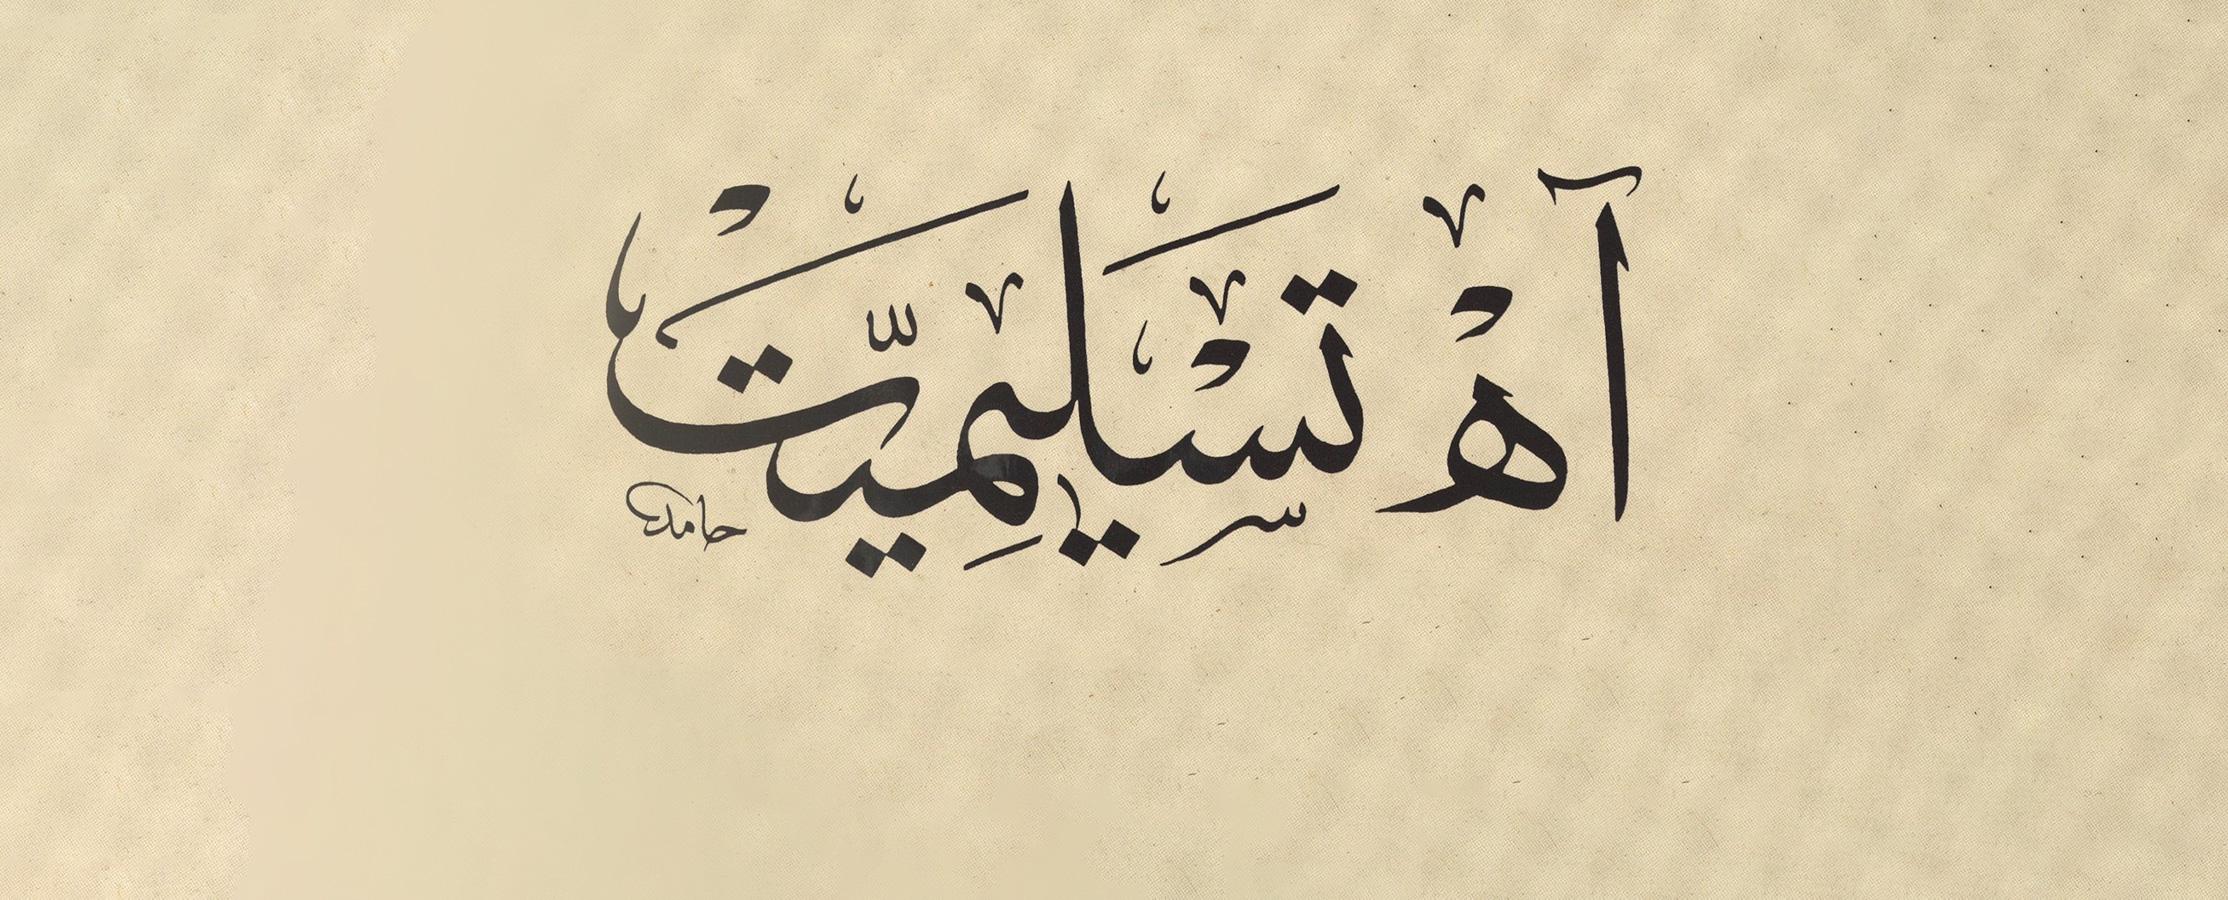 آهْ تَسْلِيمِيَّتْ
حامد